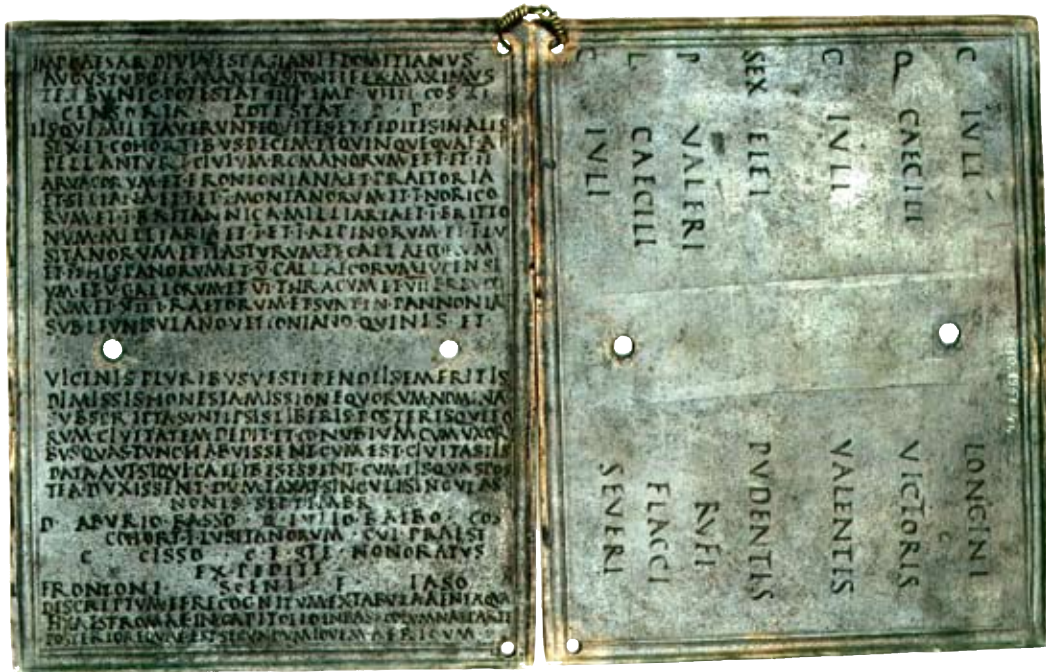 IMP CAESAR DIVI VESPASIANI F DOMITIANVS
AVGVSTVS GERMANICVS PONTIFEX MAXIMVS
TRIBVNIC POTESTAT IIII IMP VIIII COS XI
CENSORIA POTESTAT P P
IIS QVI MILITAVERVNT EQVITES ET PEDITES IN ALIS
SEX ET COHORTIBVS DECEM ET QVINQVE QVAE AP
PELLANTVR I CIVIVM ROMANORVM ET I ET II
ARVACORVM ET FRONTONIANA ET PRAETORIA
ET SILIANA ET I ET I MONTANORVM ET I NORICO
RVM ET I BRITANNICA MILLIARIA ET I BRITTO
NVM MILLIARIA ET I ET I ALPINORVM ET I LV
SITANORVM ET II ASTVRVM ET CALLAECORVM
ET II HISPANORVM ET V CALLAECORVM LVCENSI
VM ET V GALLORVM ET VI THRACVM ET VII BREVCO
RVM ET VIII RAETORVM ET SVNT IN PANNONIA
SVB L FVNISVLANO VETTONIANO QVINIS ET
VICINIS PLVRIBVSVE STIPENDIIS EMERITIS
DIMISSIS HONESTA MISSIONE QVORVM NOMINA
SVBSCRIPTA SVNT IPSIS LIBERIS POSTERISQVE EO
RVM CIVITATEM DEDIT ET CONVBIVM CVM VXORI
BVS QVAS TVNC HABVISSENT CVM EST CIVITAS IIS
DATA AVT SI QVI CAELIBES ESSENT CVM IIS QVAS POS
TEA DVXISSENT DVMTAXAT SINGVLI SINGVLAS
NONIS SEPTEMBR
D ABVRIO BASSO Q IVLIO BALBO COS
COHORT I LVSITANORVM CVI PRAEST
C CISSO C F STE HONORATVS
EX PEDITE
FRONTONI SCENI F IASO
DESCRIPTVM ET RECOGNITVM EX TABVLA AENEA QVAE
FIXA EST ROMAE IN CAPITOLIO IN BASI COLVMNAE PARTE
POSTERIORE QVAE EST SECVNDVM IOVEM AFRICVM
C IVLI LONGINI
P CAECILI VICTORIS
C IVLI VALENTIS
SEX ELEI PVDENTIS
P VALERI RVFI
L CAECILI FLACCI
C IVLI SEVERI